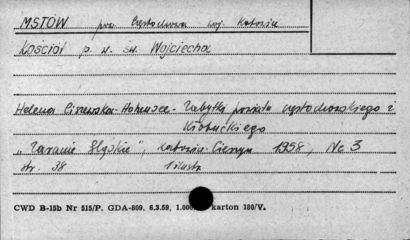 MSTÓW pow. Częstochowa woj. Katowice
Kościół p. w. św. Wojciecha
Helena - Zabytki powiatu częstochowskiego i
Kłobuckiego
„Zaranie Śląskie", Katowice-Cieszyn 1958, Nr 3
str. 38 1 ilustr.
CWD B-15b Nr 515/P. GDA-509. 6.3.59. 1.000 karton 180/V.